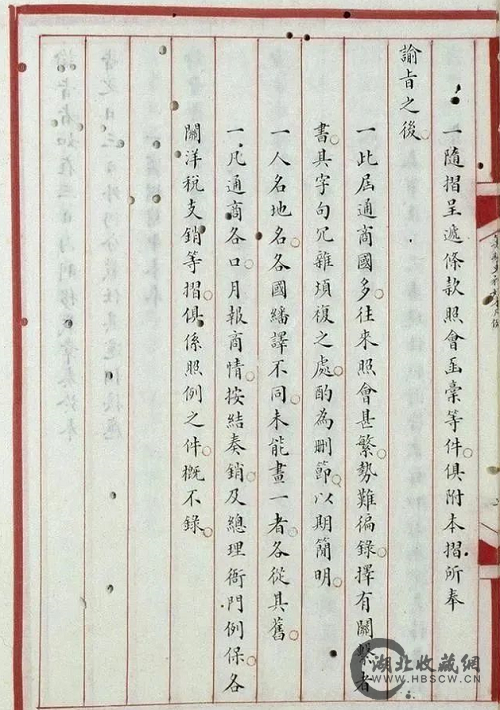 一隨摺呈遞條款照會函稾等件俱附本摺所奉
諭旨之後
一此屆通商國多往來照會甚繁勢難徧錄擇有關繫者
書其字句冗雜煩複之處酌為刪節以期簡明
一人名地名各國繙譯不同未能畫一者各從其舊
一凡通商各口月報商情按結奏銷及總理衙門例保各
關洋稅支銷等摺俱係照例之件概不錄
湖北收藏網
WWW.HBSCW.CN